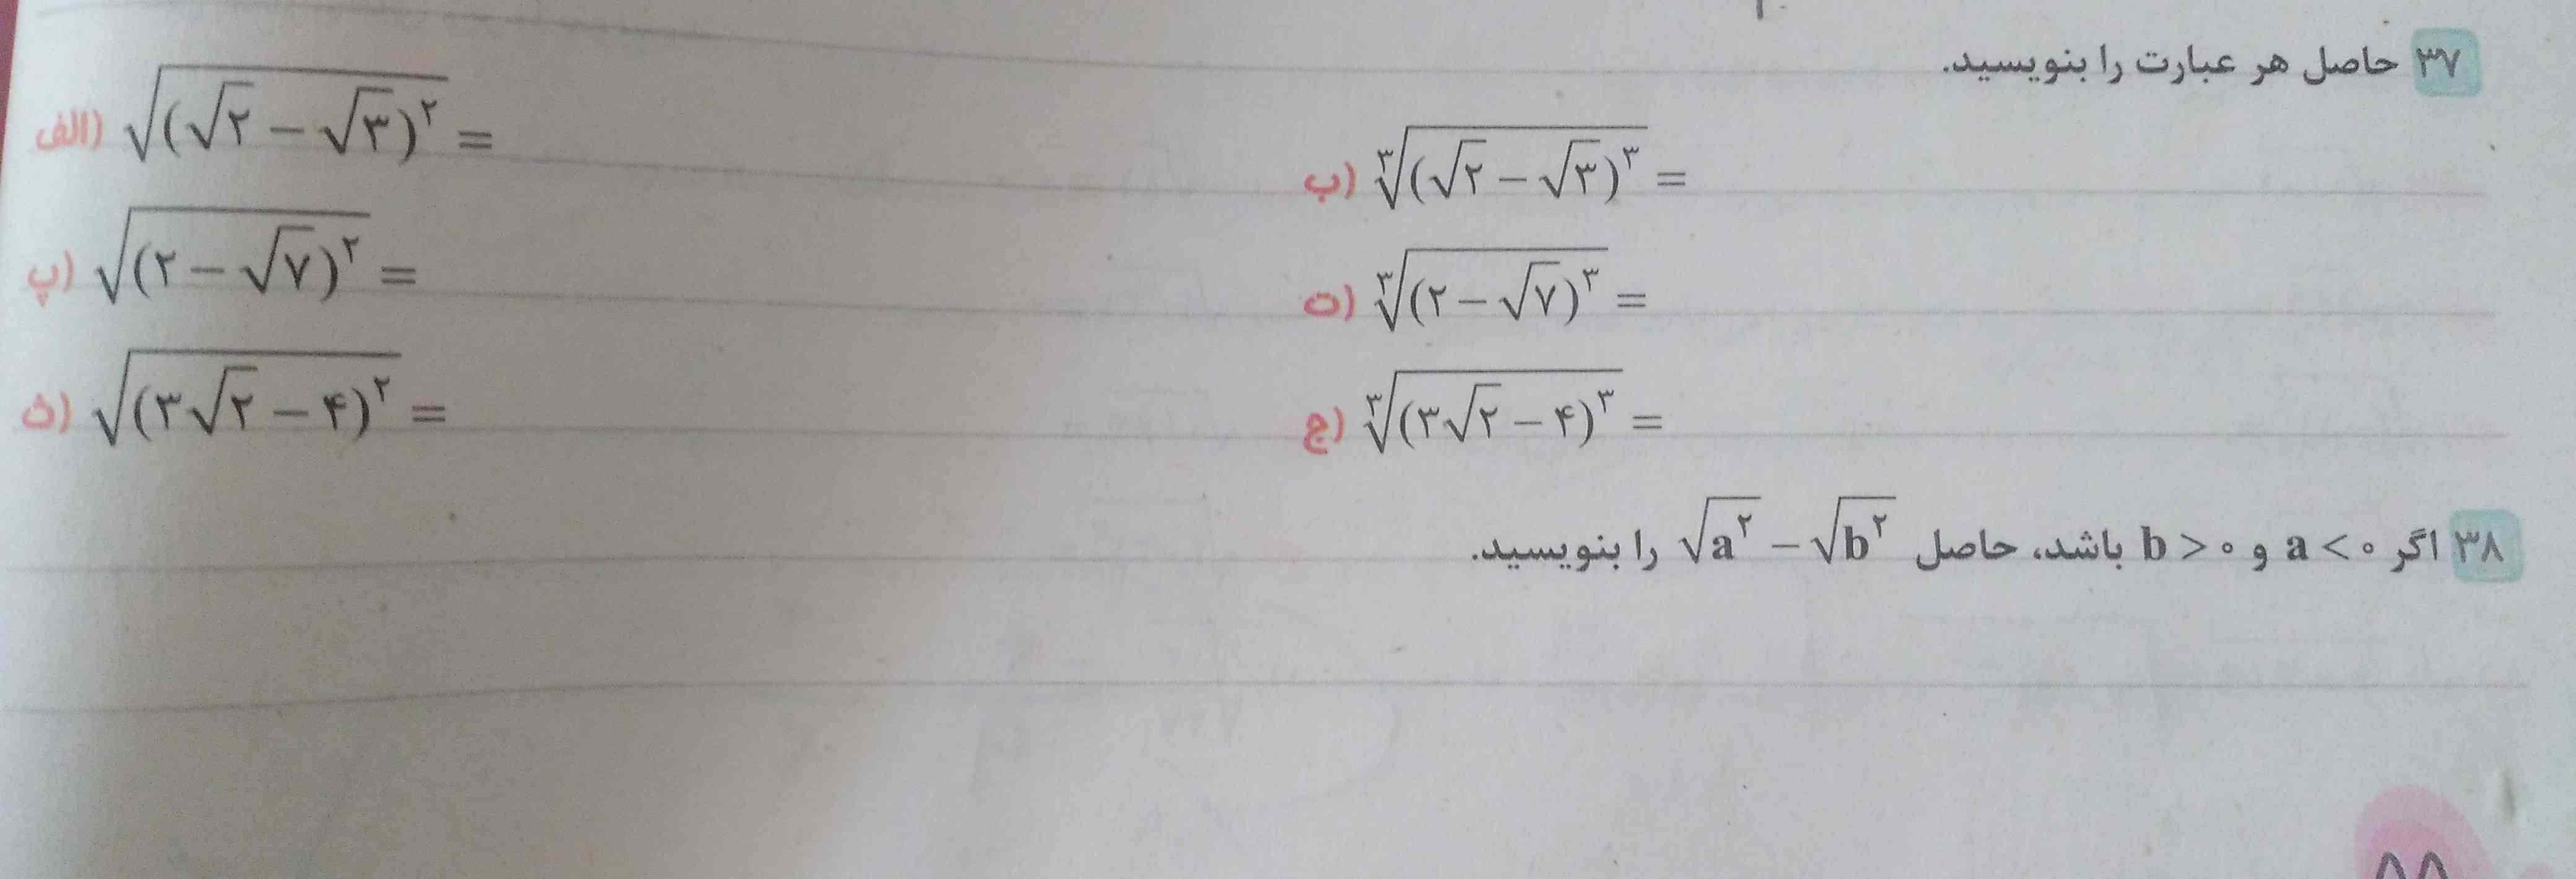 ۳۷ حاصل هر عبارت را بنویسید.
الف) √(√۲ − √۳)^۲ =
ب) ∛(√۲ − √۳)^۳ =
پ) √(۲ − √۷)^۲ =
ت) ∛(۲ − √۷)^۳ =
ث) √(۳√۲ − ۴)^۲ =
ج) ∛(۳√۲ − ۴)^۳ =
۳۸ اگر a < ۰ و b > ۰ باشد، حاصل √a^۲ − √b^۲ را بنویسید.